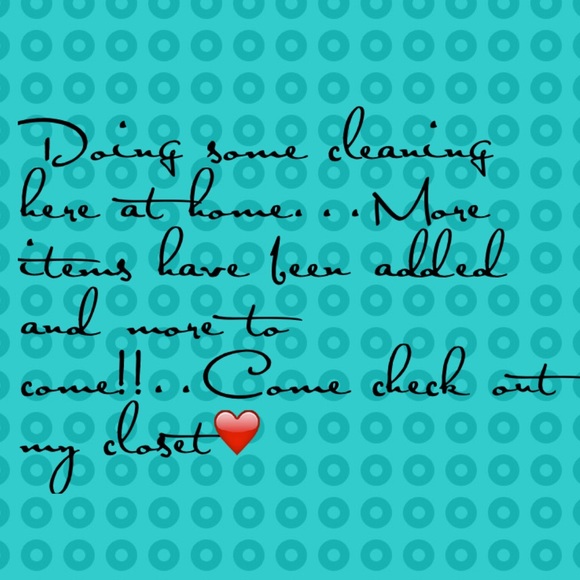 Doing some cleaning
here at home. . . More
items have been added
and more to
come!! . . Come check out
my closet❤️